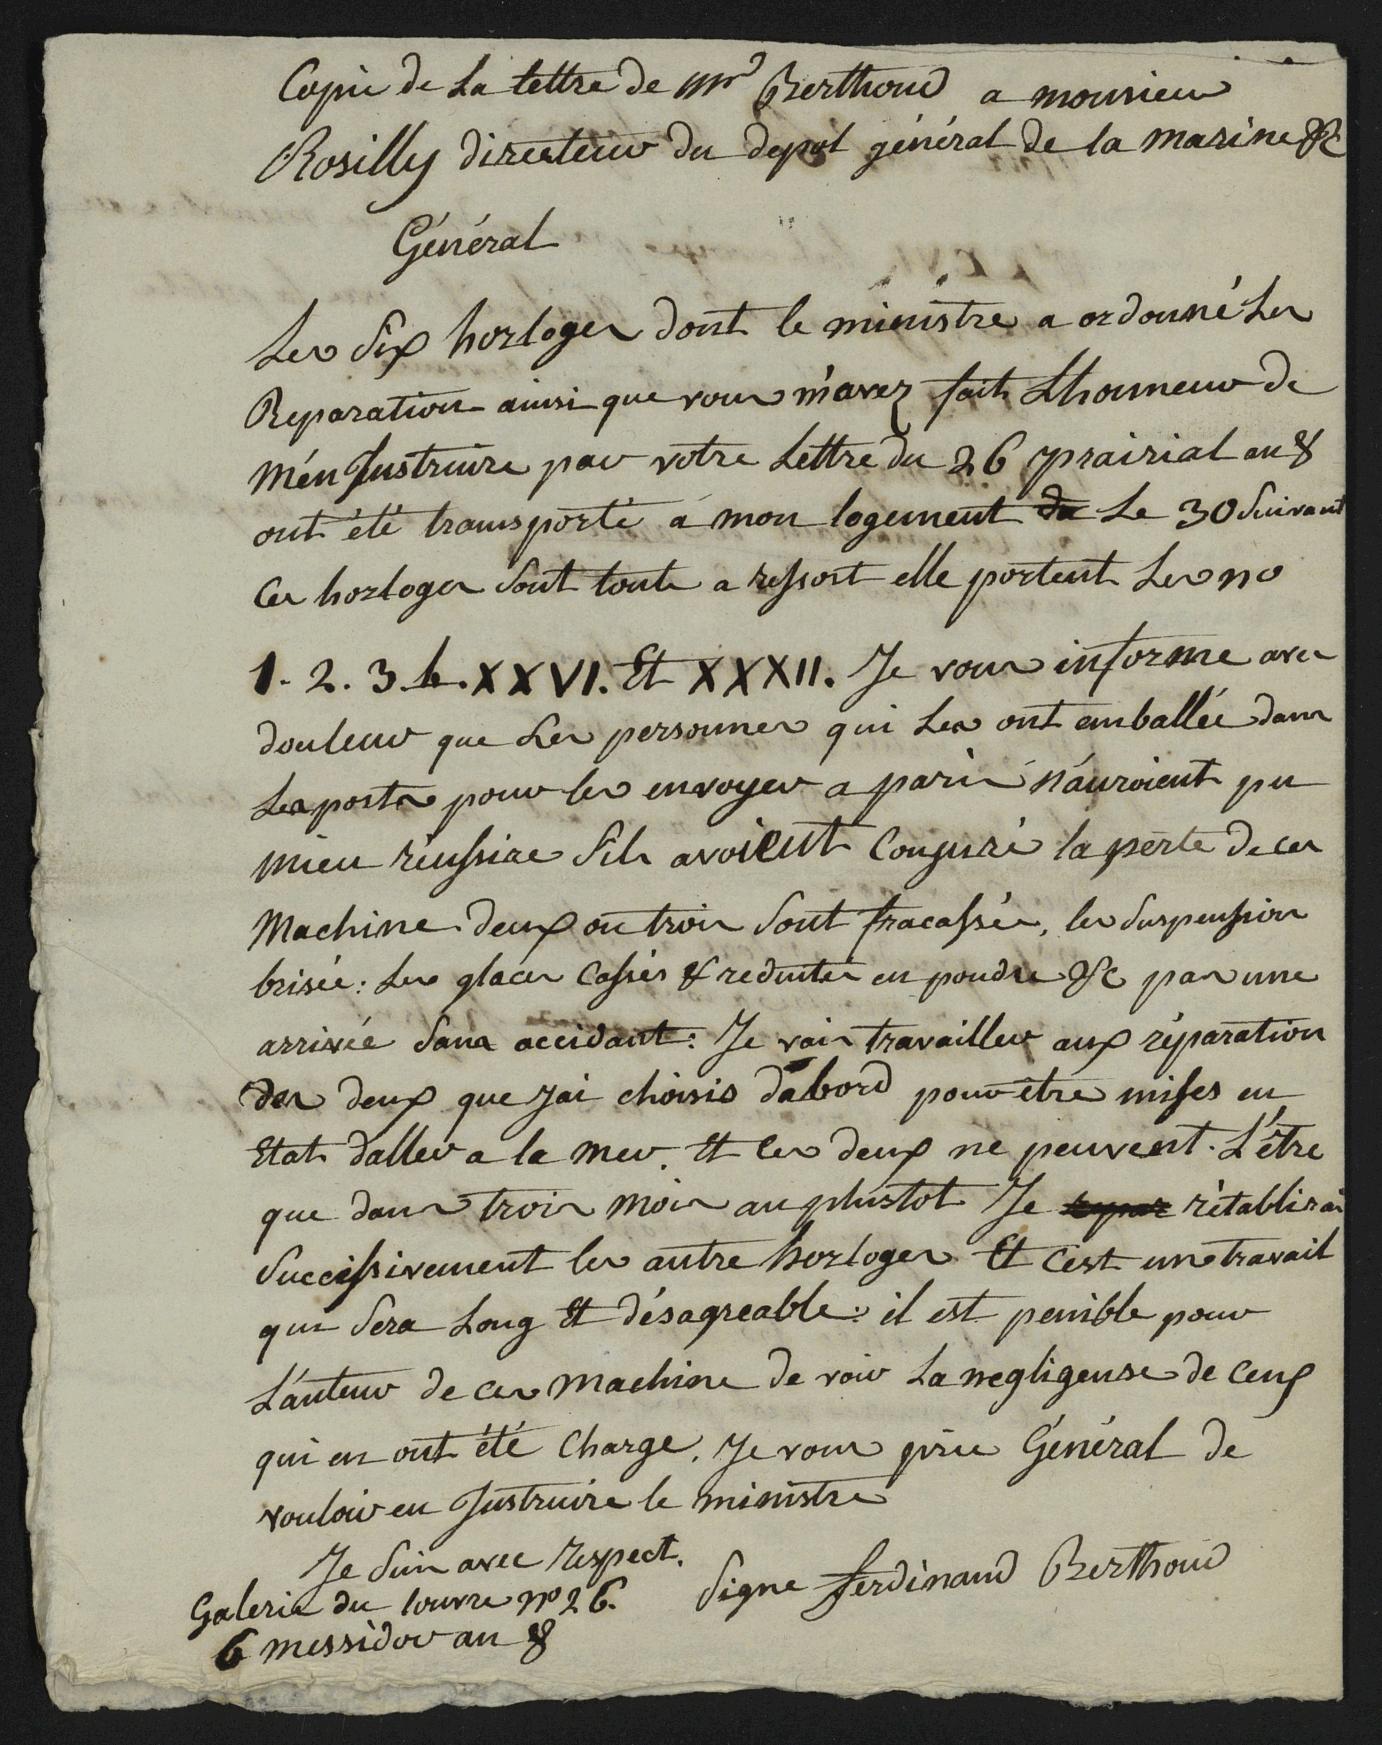 Copie de La lettre de mr Berthoud a monsieur
Rosilly directeur du depot général de la marine &c
Général
Les Six horloges dont le ministre a ordonné Les
Reparation ainsi que vous m'avez fait Lhonneur de
m'en Instruire par votre Lettre du 26 prairial an 8
ont été transporté a mon logement du Le 30 Suivant
Ces horloges Sont toute a ressort elle portent Les no
1. 2. 3. h. XXVI. Et XXXII. Je vous informe avec
douleur que Les personnes qui Les ont emballée dans
Les ports pour les envoyer a paris n'auroient pu
mieu réussire Sils avoient Conjuré la perte de ces
Machine. deux ou trois Sont fracassée, les Suspension
brisée: Les glaces Cassés & reduites en poudre &c pas une
arrivée Sans accidant: Je vais travailler aux réparation
des deux que Jai choisis dabord pour être mises en
Etat daller a la mer. Et Ces deux ne peuvent L'être
que dans trois mois au plustot Je repar rétablirai
Successivement les autre horloges Et C'est un travail
qui Sera Long Et désagreable: il est penible pour
L'auteur de ces Machine de voir La negligense de Ceux
qui en ont été Charge. Je vous prie Général de
vouloir en Instruire le ministre
Je Suis avec respect.
Galerie du louvre no 26. Signe ferdinand Berthoud
6 messidor an 8